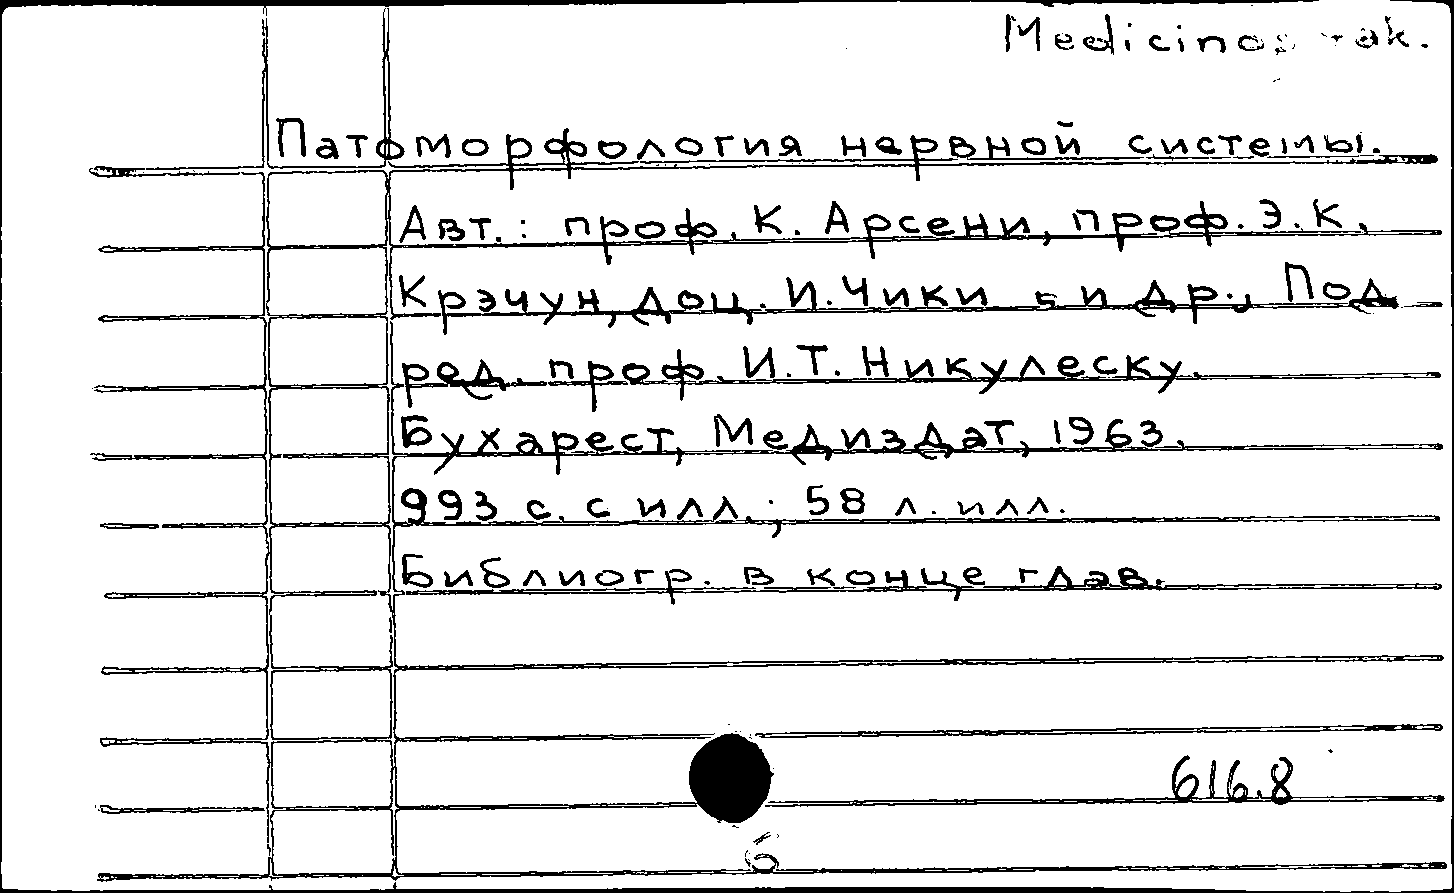 Medicinos fak.
Патоморфология нервной системы.
Авт.: проф. К. Арсени, проф. Э.К.
Крэчун, доц. И. Чики и др., Под
ред. проф. И.Т. Никулеску.
Бухарест, Медиздат, 1963.
993 с. с илл.; 58 л. илл.
Библиогр. в конце глав.
616.8
6